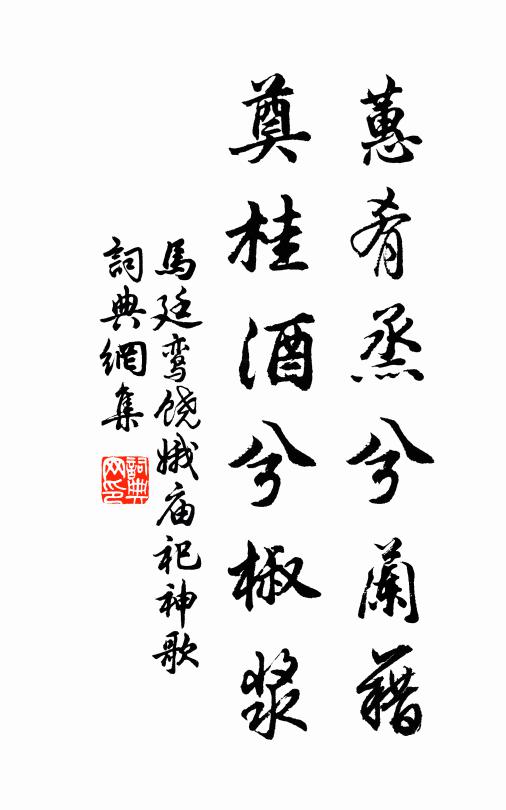 蕙肴烝兮蘭藉
奠桂酒兮椒漿
馬廷鸾饶娥庙祀神歌
詞典網集
詞典网印